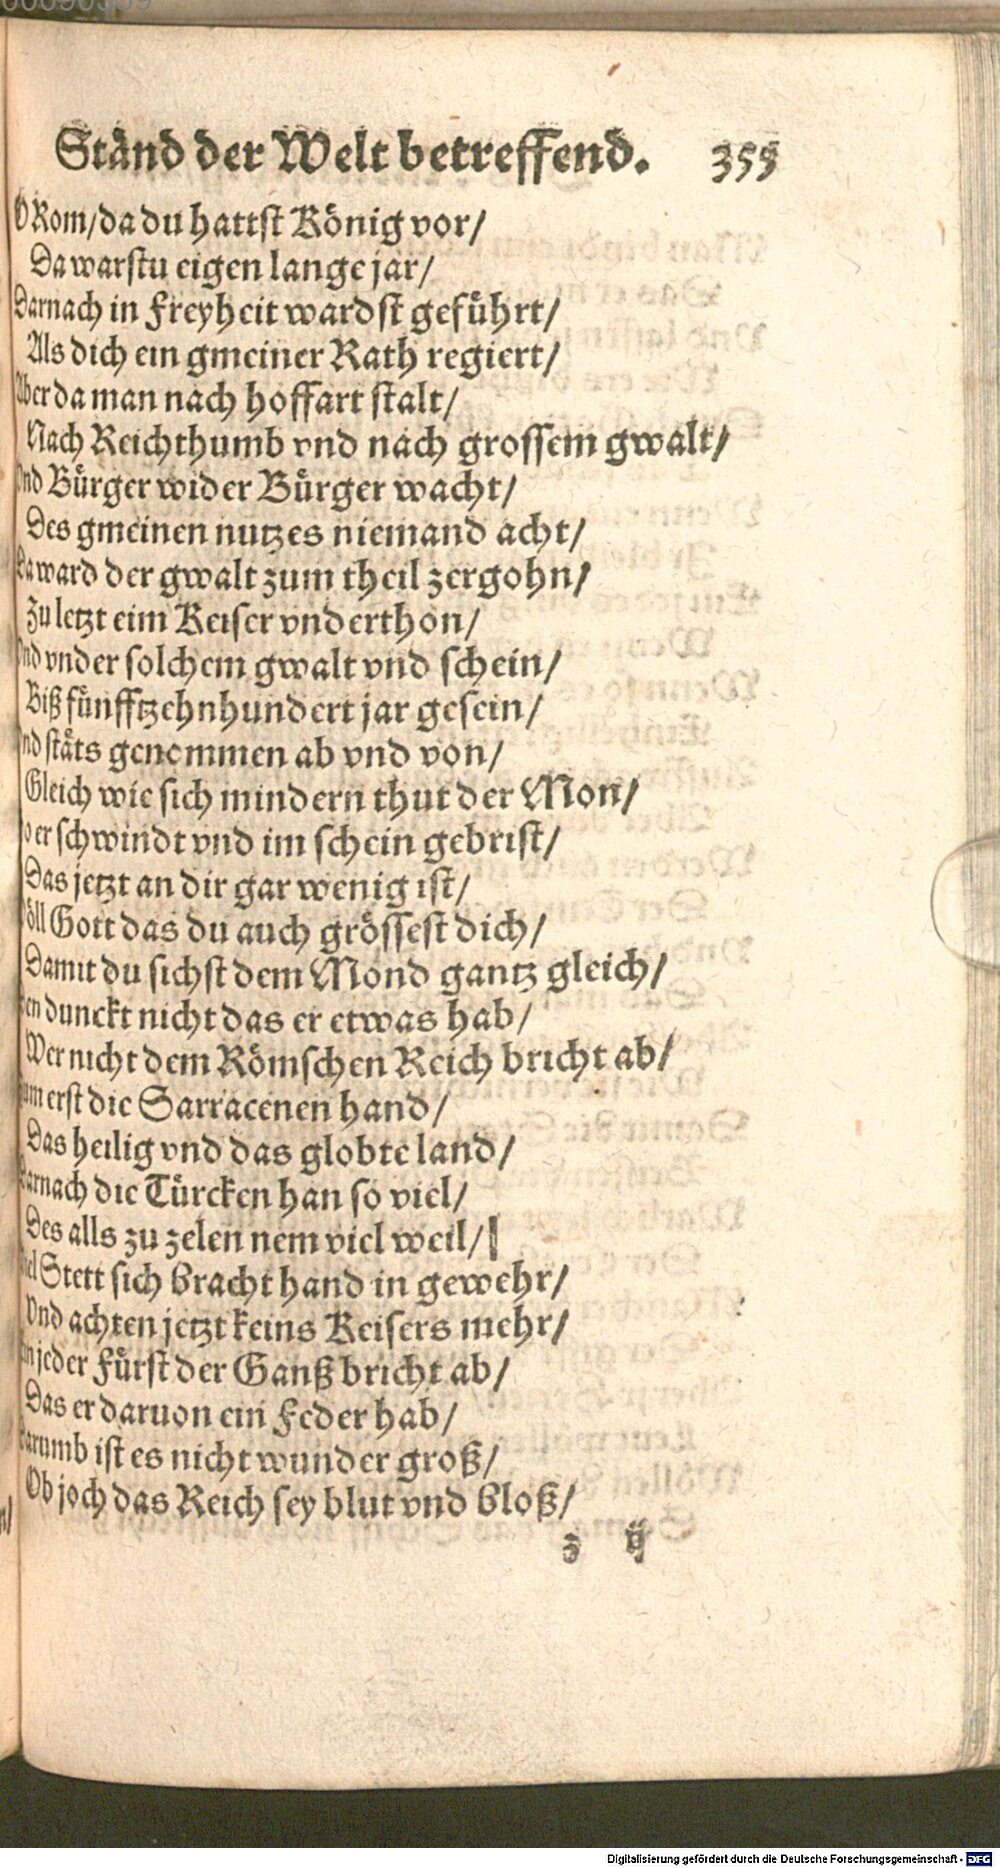 Ständ der Welt betreffend. 355
O Rom/da du hattst König vor/
Da warstu eigen lange jar/
Darnach in Freyheit wardst geführt/
Als dich ein gmeiner Rath regiert/
Aber da man nach hoffart stalt/
Nach Reichthumb vnd nach grossem gwalt/
Vnd Bürger wider Bürger wacht/
Des gmeinen nutzes niemand acht/
Da ward der gwalt zum theil zergohn/
Zu letzt eim Keiser vnderthon/
Vnd vnder solchem gwalt vnd schein/
Biß fünfftzehnhundert jar gesein/
Vnd stäts genommen ab vnd von/
Gleich wie sich mindern thut der Mon/
So er schwindt vnd im schein gebrist/
Das jetzt an dir gar wenig ist/
Wöll Gott das du auch grössest dich/
Damit du sichst dem Mond gantz gleich/
Den dunckt nicht das er etwas hab/
Wer nicht dem Römschen Reich bricht ab/
Zum erst die Sarracenen hand/
Das heilig vnd das globte land/
Darnach die Türcken han so viel/
Des alls zu zelen nem viel weil/
Viel Stett sich bracht hand in gewehr/
Vnd achten jetzt keins Keisers mehr/
Ein jeder Fürst der Ganß bricht ab/
Das er daruon ein Feder hab/
Darumb ist es nicht wunder groß/
Ob joch das Reich sey blut vnd bloß/
z ij
Digitalisierung gefördert durch die Deutsche Forschungsgemeinschaft - DFG